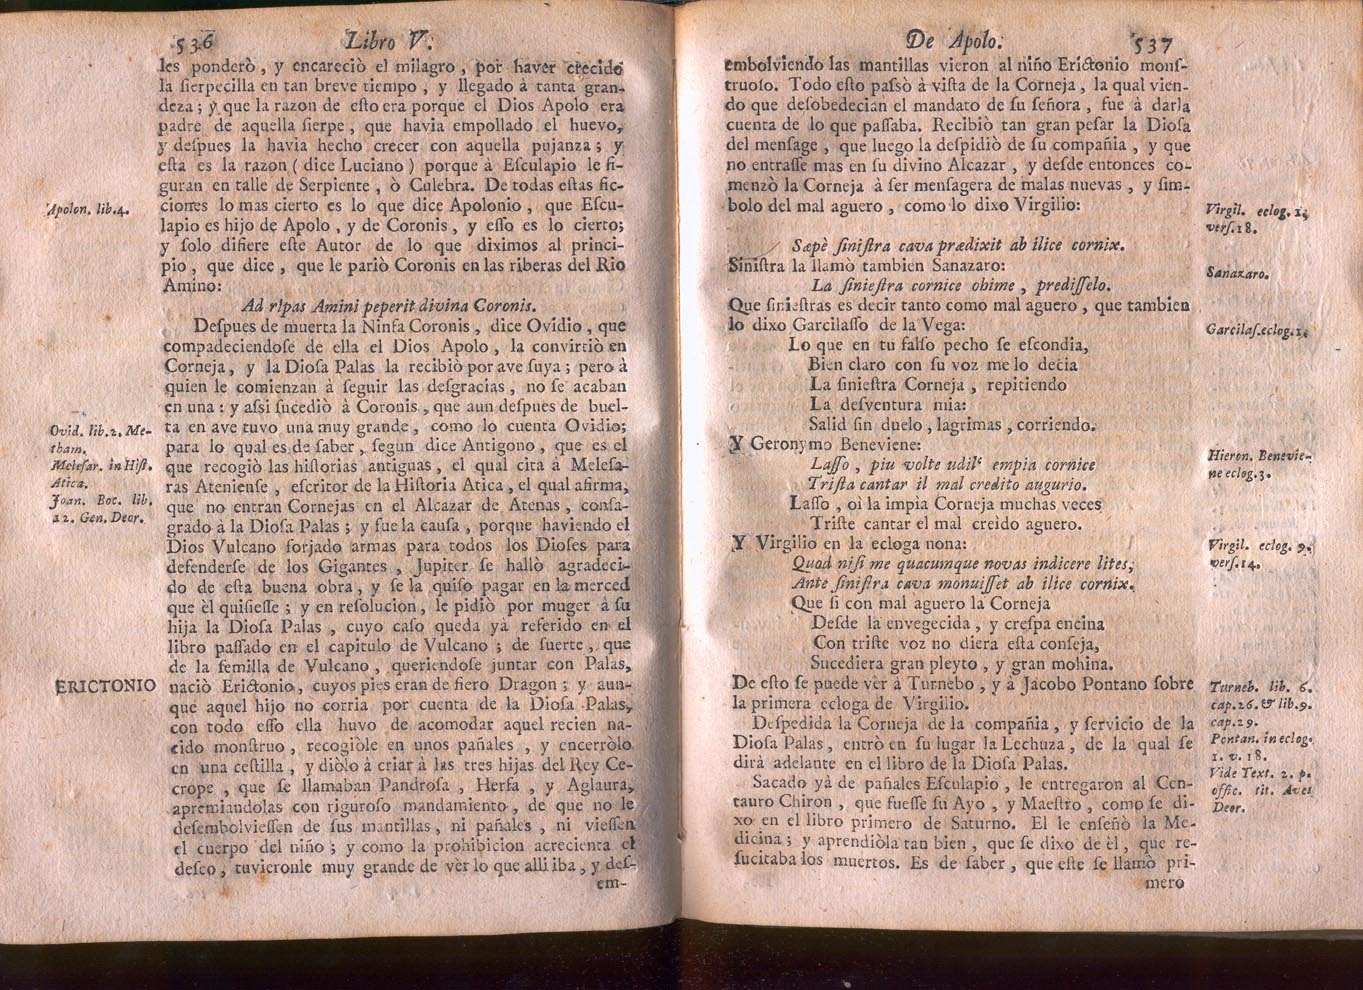 536 Libro V.
les ponderò, y encareciò el milagro, por haver crecido
la ſierpecilla en tan breve tiempo, y llegado à tanta gran-
deza; y que la razon de eſto era porque el Dios Apolo era
padre de aquella ſierpe, que havia empollado el huevo,
y deſpues la havia hecho crecer con aquella pujanza; y
eſta es la razon (dice Luciano) porque à Eſculapio le fi-
guran en talle de Serpiente, ò Culebra. De todas eſtas fic-
ciones lo mas cierto es lo que dice Apolonio, que Eſcu-
lapio es hijo de Apolo, y de Coronis, y eſſo es lo cierto;
y ſolo difiere eſte Autor de lo que diximos al princi-
pio, que dice, que le pariò Coronis en las riberas del Rio
Amino:
Ad ripas Amini peperit divina Coronis.
Deſpues de muerta la Ninfa Coronis, dice Ovidio, que
compadeciendoſe de ella el Dios Apolo, la convirtiò en
Corneja, y la Dioſa Palas la recibiò por ave ſuya; pero à
quien le comienzan à ſeguir las deſgracias, no ſe acaban
en una: y aſsi ſucediò à Coronis, que aun deſpues de buel-
ta en ave tuvo una muy grande, como lo cuenta Ovidio;
para lo qual es de ſaber, ſegun dice Antigono, que es el
que recogiò las hiſtorias antiguas, el qual cita à Meleſa-
ras Atenienſe, eſcritor de la Hiſtoria Atica, el qual afirma,
que no entran Cornejas en el Alcazar de Atenas, conſa-
grado à la Dioſa Palas; y fue la cauſa, porque haviendo el
Dios Vulcano forjado armas para todos los Dioſes para
defenderſe de los Gigantes, Jupiter ſe hallò agradeci-
do de eſta buena obra, y ſe la quiſo pagar en la merced
que èl quiſieſſe; y en reſolucion, le pidiò por muger à ſu
hija la Dioſa Palas, cuyo caſo queda yà referido en el
libro paſſado en el capitulo de Vulcano; de ſuerte, que
de la ſemilla de Vulcano, queriendoſe juntar con Palas,
naciò Erictonio, cuyos pies eran de fiero Dragon; y aun-
que aquel hijo no corria por cuenta de la Dioſa Palas,
con todo eſſo ella huvo de acomodar aquel recien na-
cido monſtruo, recogiòle en unos pañales, y encerròlo
en una ceſtilla, y diòlo à criar à las tres hijas del Rey Ce-
crope, que ſe llamaban Pandroſa, Herſa, y Aglaura,
apremiandolas con riguroſo mandamiento, de que no le
deſembolvieſſen de ſus mantillas, ni pañales, ni vieſſen
el cuerpo del niño; y como la prohibicion acrecienta el
deſeo, tuvieronle muy grande de vèr lo que alli iba, y deſ-
em-
Apolon. lib.4.
Ovid. lib.2. Me-
tham.
Meleſar. in Hiſt.
Atica.
Joan. Boc. lib.
12. Gen. Deor.
ERICTONIO
De Apolo. 537
embolviendo las mantillas vieron al niño Erictonio monſ-
truoſo. Todo eſto paſsò à viſta de la Corneja, la qual vien-
do que deſobedecian el mandato de ſu ſeñora, fue à darla
cuenta de lo que paſſaba. Recibiò tan gran peſar la Dioſa
del menſage, que luego la deſpidiò de ſu compañia, y que
no entraſſe mas en ſu divino Alcazar, y deſde entonces co-
menzò la Corneja à ſer menſagera de malas nuevas, y ſim-
bolo del mal aguero, como lo dixo Virgilio:
Sæpè ſiniſtra cava prædixit ab ilice cornix.
Siniſtra la llamò tambien Sanazaro:
La ſinieſtra cornice ohime, prediſſelo.
Que ſinieſtras es decir tanto como mal aguero, que tambien
lo dixo Garcilaſſo de la Vega:
Lo que en tu falſo pecho ſe eſcondia,
Bien claro con ſu voz me lo decia
La ſinieſtra Corneja, repitiendo
La deſventura mia:
Salid ſin duelo, lagrimas, corriendo.
Y Geronymo Beneviene:
Laſſo, piu volte udil' empia cornice
Triſta cantar il mal credito augurio.
Laſſo, oì la impia Corneja muchas veces
Triſte cantar el mal creido aguero.
Y Virgilio en la ecloga nona:
Quod niſi me quacumque novas indicere lites,
Ante ſiniſtra cava monuiſſet ab ilice cornix.
Que ſi con mal aguero la Corneja
Deſde la envegecida, y creſpa encina
Con triſte voz no diera eſta conſeja,
Sucediera gran pleyto, y gran mohina.
De eſto ſe puede vèr à Turnebo, y à Jacobo Pontano ſobre
la primera ecloga de Virgilio.
Deſpedida la Corneja de la compañia, y ſervicio de la
Dioſa Palas, entrò en ſu lugar la Lechuza, de la qual ſe
dirà adelante en el libro de la Dioſa Palas.
Sacado yà de pañales Eſculapio, le entregaron al Cen-
tauro Chiron, que fueſſe ſu Ayo, y Maeſtro, como ſe di-
xo en el libro primero de Saturno. El le enſeñò la Me-
dicina; y aprendiòla tan bien, que ſe dixo de èl, que re-
ſucitaba los muertos. Es de ſaber, que eſte ſe llamò pri-
mero
Virgil. eclog. 1.
verſ.18.
Sanazaro.
Garcilaſ.eclog.1.
Hieron. Benevie-
ne eclog.3.
Virgil. eclog. 9.
verſ.14.
Turneb. lib. 6.
cap.26. & lib.9.
cap.29.
Pontan. in eclog.
1. v. 18.
Vide Text. 2. p.
offic. tit. Aves
Deor.